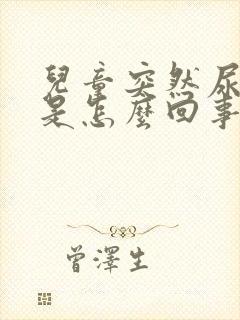 兒童突然尿
是怎麼回事
曾澤生